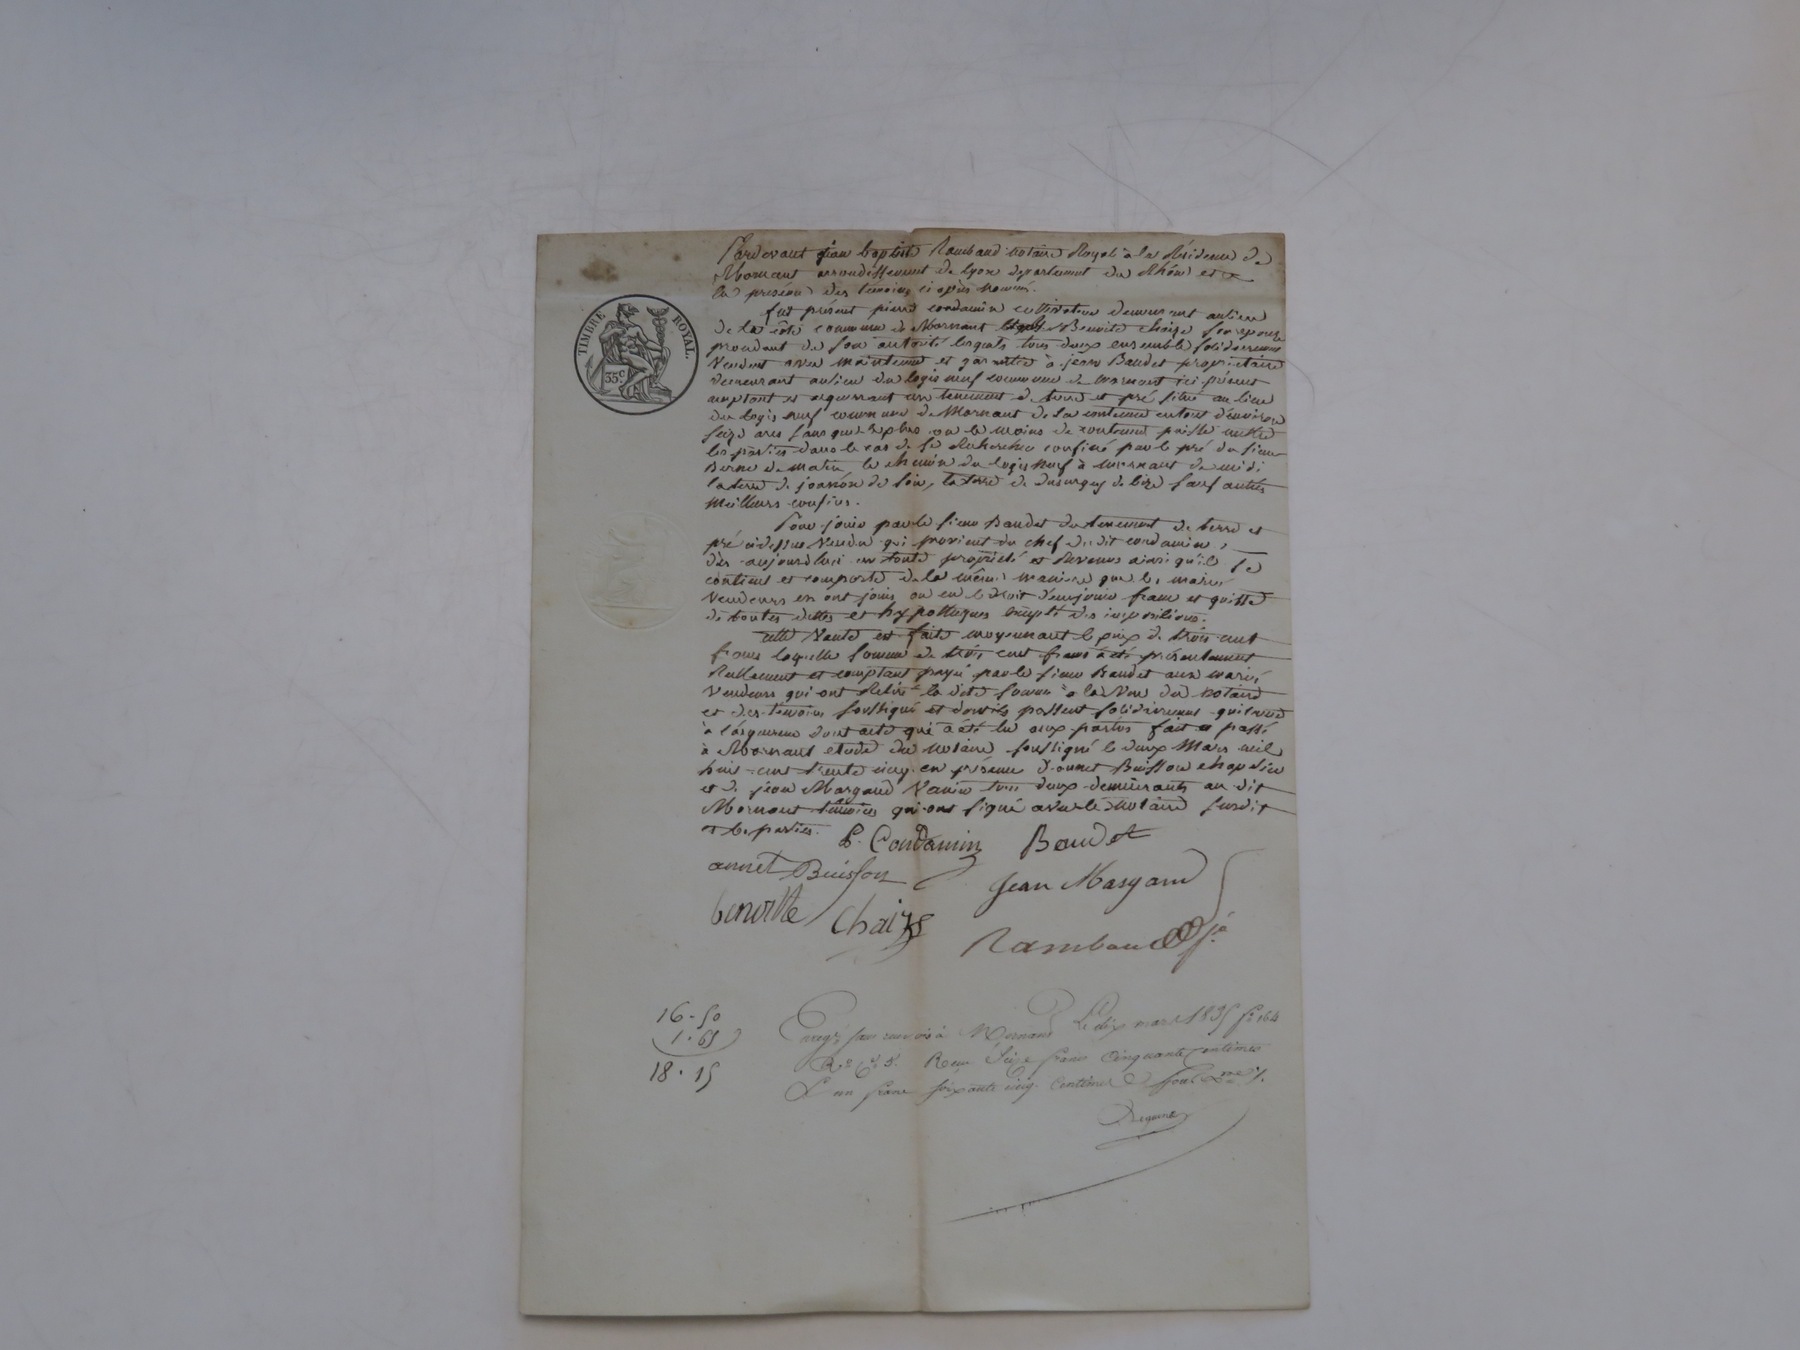 Pardevant jean baptiste Rambaud notaire Royal à la Résidence de
Mornant arrondissement de lyon departement du Rhône et
en presence des temoins ci après nommés.
fut présent pierre condamin cultivateur demeurant au lieu
de la côte commune de Mornant Benoite chaize son epouse
procedant de son autorité lesquels tous deux ensemble solidairement
Vendent avec maintenue et garantie à jean Baudet proprietaire
demeurant au lieu du logis neuf commune de mornant ici présent
acceptant et acquerrant un tenement de terre et pré situé au lieu
du logis neuf commune de Mornant de la contenue en tout d'environ
seize ares sans que le plus ou le moins de contenue puisse nuire
les parties dans le cas de se Rechercher confiné par le pré du sieur
de matin, le chemin du logis neuf à mornant de midi
la terre de joannon de soir, la terre de de bize sauf autres
meilleurs confins.
Pour jouir par le sieur Baudet du tenement de terre et
pré ci dessus vendu qui provient du chef du dit condamin,
dès aujourd'hui en toute propriété et Revenus ainsi qu'il se
contient et comporte de la même maniere que les mariés
Vendeurs en ont jouis ou eu le droit d'en jouir franc et quitte
de toutes dettes et hypotheques excepté des impositions.
cette Vente est faite moyennant le prix de trois cent
francs laquelle somme de trois cent francs a été présentement
Réellement et comptant payé par le sieur Baudet aux mariés
Vendeurs qui ont Retiré la dite somme à la Vue du notaire
et des temoins soussignés et dont ils passent solidairement quittance
à l'acquereur dont acte qui a été lu aux parties fait et passé
à Mornant etude du notaire soussigné le deux Mars mil
huit cent trente cinq en présence d'annet Buisson chapelier
et de jean Margand tous deux demeurants au dit
Mornant temoins qui ont signé avec le notaire susdit
et les parties.
P. Condamin Baudet
annet Buisson Jean Margand
benoitte Chaize
Rambaud
16-50
1.65
18.15
Enreg.é sans renvois à Mornant Le dix mars 1835 f.o 164
R.o C. 5. Reçu Seize francs Cinquante Centimes
& un franc soixante cinq Centimes